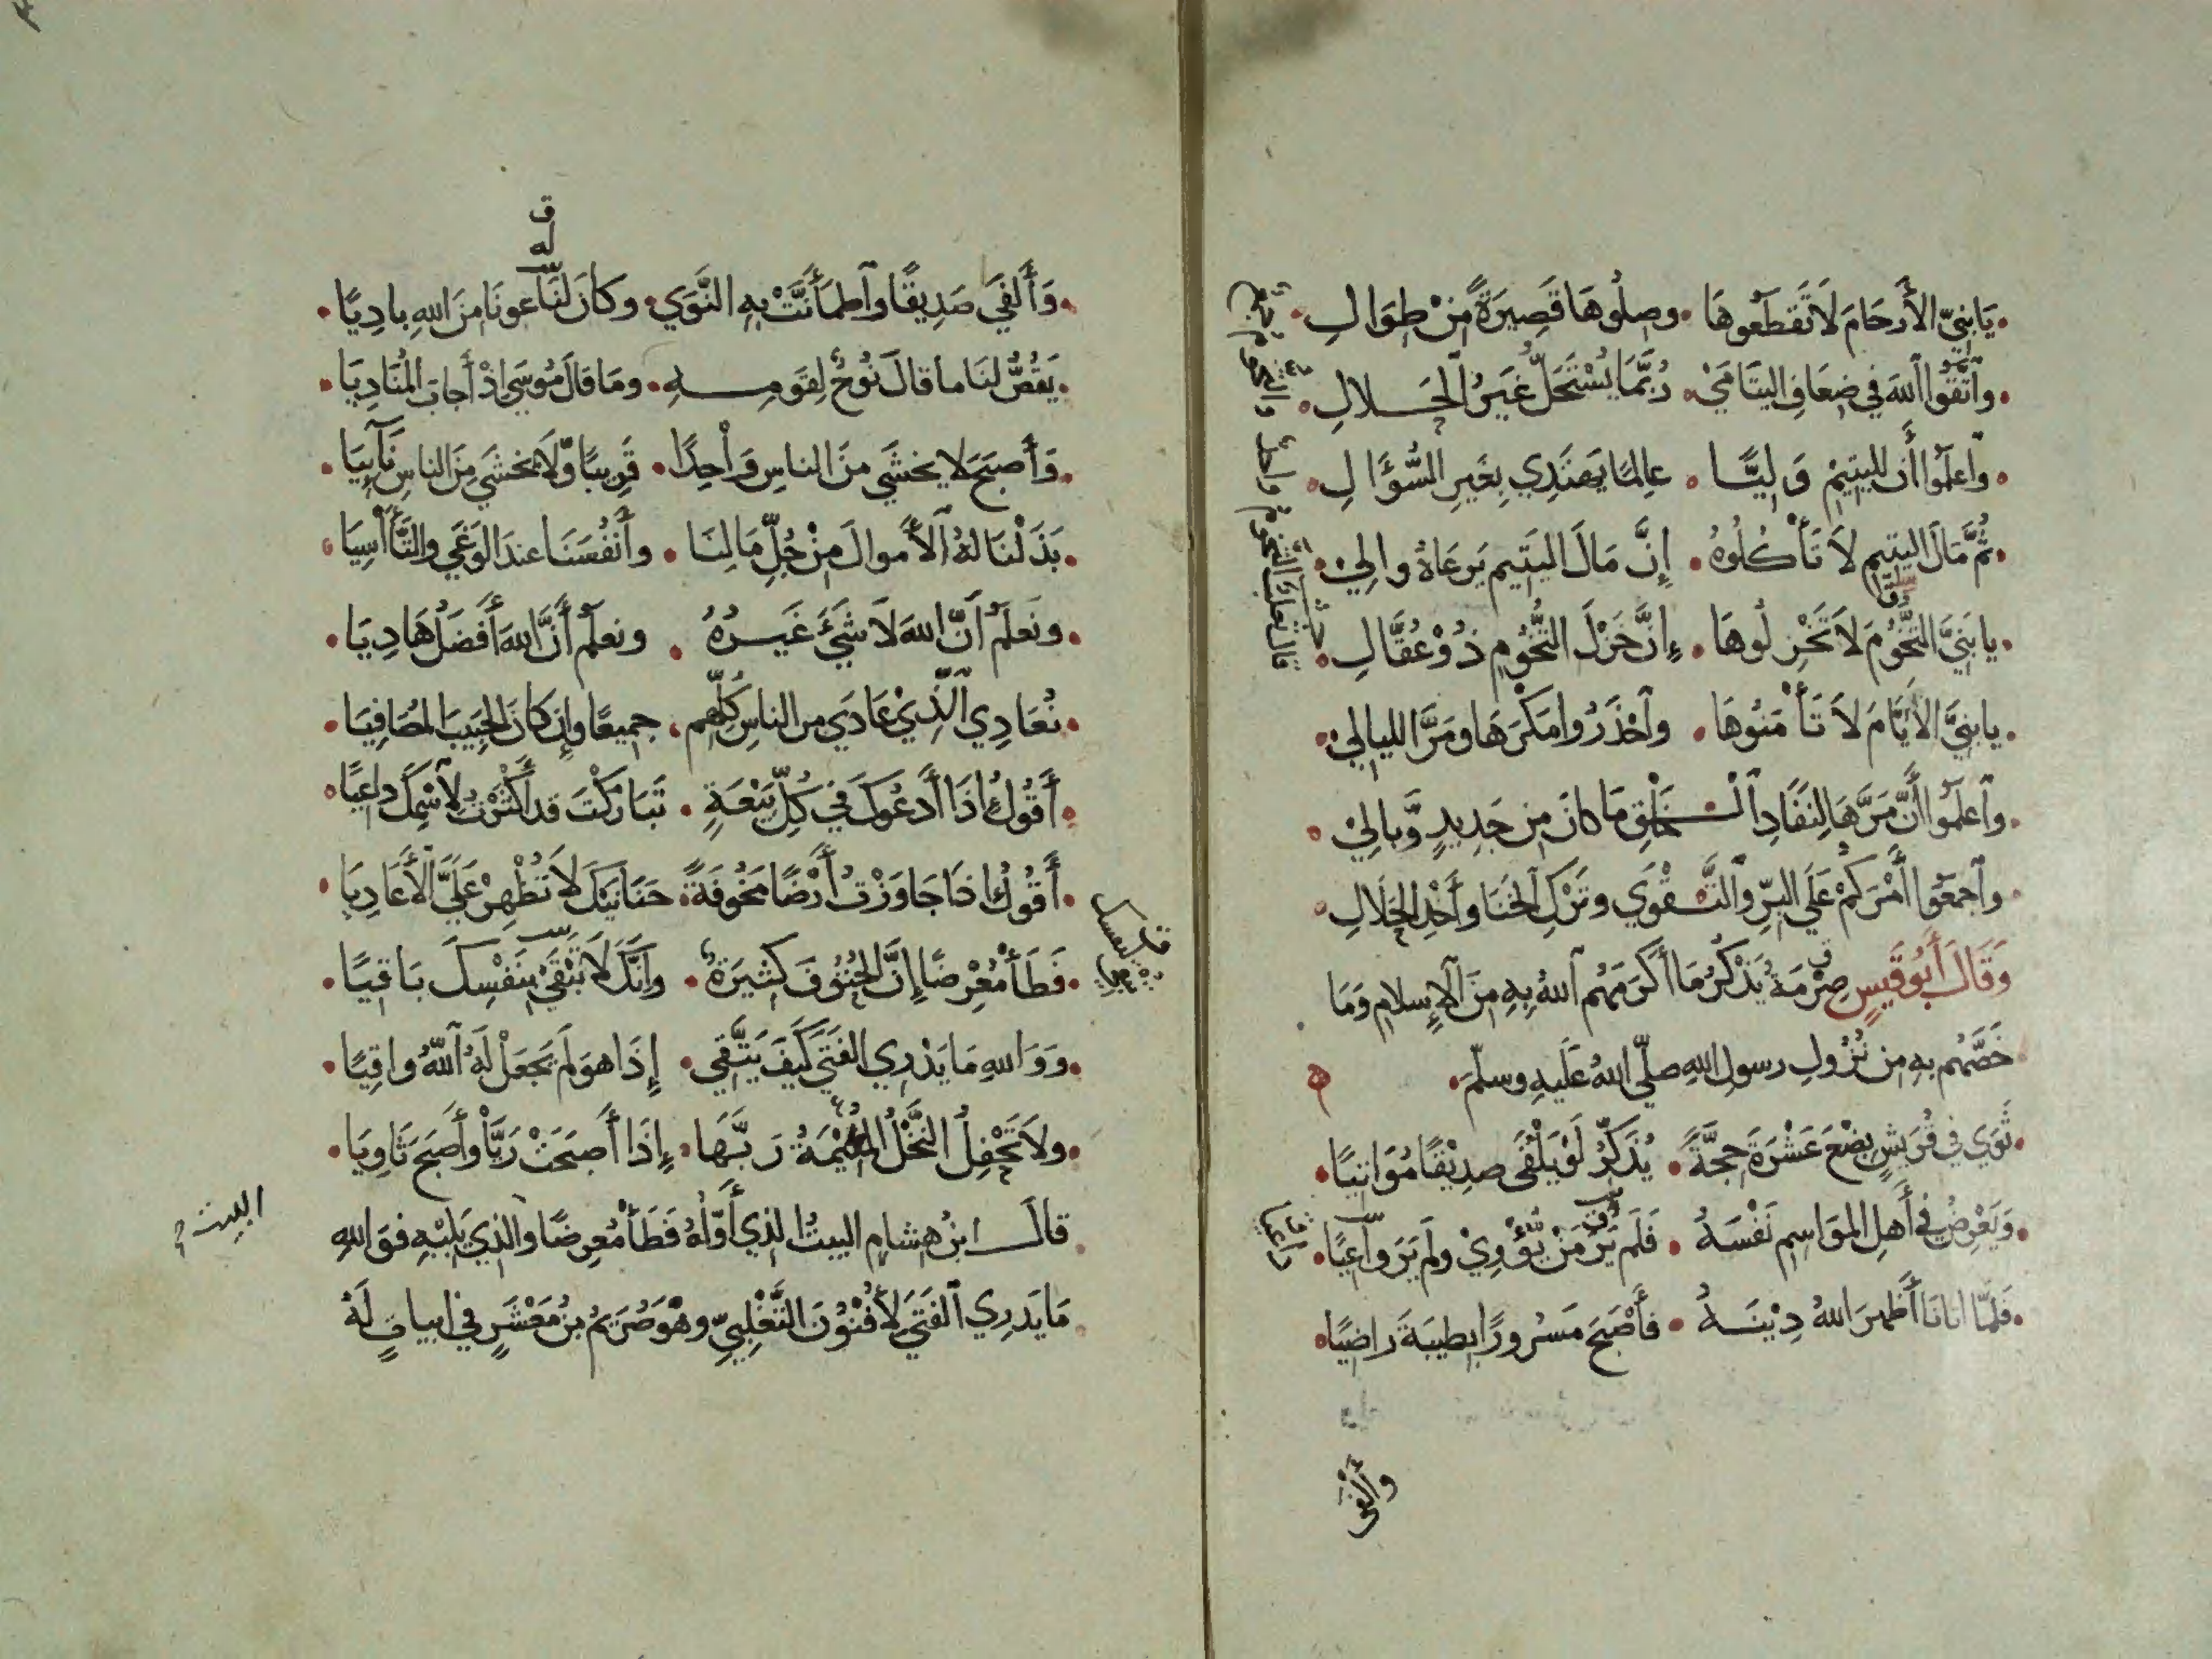 يَا بَنِيَّ الأَرْحَامَ لَا تَقْطَعُوهَا • وصِلُوهَا قَصِيرَةً مِنْ طِوَالِ
وٱتَّقُوا ٱللهَ في ضِعَافِ اليَتَامَى • رُبَّمَا يُسْتَحَلُّ غَيْرُ ٱلحَلالِ
وٱعلَمُوا أَنَّ لليتِيْمِ وَلِيًّا • عالِمًا يَهْتَدِي بِغَيرِ السُّؤَالِ
ثُمَّ مَالَ اليَتِيمِ لَا تَأْكُلُوهُ • إِنَّ مَالَ اليَتِيمِ يَرعَاهُ والِيْ
يا بَنِيَّ التُّخُومَ لَا تَخْزِلُوهَا • إِنَّ خَزْلَ التُّخُومِ ذُوْ عُقَّالِ
يا بنيَّ الأَيَّامَ لَا تَأْمَنُوهَا • وٱحْذَرُوا مَكْرَهَا ومَرَّ الليالِيْ
وٱعلَمُوا أَنَّ مَرَّهَا لِنَفَادِ ٱلْخَلْقِ مَا كانَ مِن جَدِيدٍ وَّبالِيْ
وٱجمَعُوا أَمْرَكُمْ عَلَى البِرِّ وٱلتَّقْوَى وتَرْكِ الخَنَا وأَخْذِ الحَلَالِ
وَقَالَ أَبُو قَيْسٍ صِرْمَةُ يَذْكُرُ مَا أَكرَمَهُم ٱللهُ بِهِ مِنَ ٱلإِسلامِ وَمَا
خَصَّهُم بهِ مِن نُزُولِ رسولِ اللهِ صلّى اللهُ عَلَيهِ وسلّمَ •
ثَوَى في قُرَيشٍ بِضْعَ عَشْرَةَ حِجَّةً • يُذَكِّرُ لَوْ يَلْقَى صدِيْقًا مُوَاتِيًا
وَيَعْرِضُ في أَهلِ المَوَاسِمِ نَفْسَهُ • فَلَم يَرَ مَنْ يُّؤْوِيْ ولَم يَرَ وَاعِيًا
فَلَمَّا اتانَا أَظهرَ اللهُ دِيْنَهُ • فأَصْبَحَ مَسْرورًا بطيبَةَ رَاضِيًا
وأَلْفَى
وَأَلفَى صَدِيقًا وٱطمَأَنَّتْ بِهِ النَّوَى • وكانَ لنَا عونًا مِنَ اللهِ بادِيًا
يَقُصُّ لنَا ما قالَ نُوحٌ لِقَومِهِ • ومَا قالَ مُوسَى إذْ أَجابَ المُنَادِيَا
وَأَصبَحَ لا يخشَى مِنَ الناسِ وَاحِدًا • قَرِيبًا وَّلَا يَخْشَى مِنَ الناسِ نَآئِيَا
بَذَلْنَا لهُ ٱلأَموالَ مِنْ جُلِّ مَالِنَا • وأَنفُسَنَا عندَ الوَغَى والتَّأَسِيَا
ونَعلَمُ أَنَّ اللهَ لَا شَيْءَ غَيرُهُ • ونعلَمُ أَنَّ اللهَ أَفضَلُ هَادِيَا
نُعَادِي ٱلَّذِيْ عَادَى من الناسِ كُلِّهِم • جميعًا وإِن كانَ الحَبِيبَ المُصَافِيَا
أَقُولُ إذَا أَدعُوكَ في كلِّ بَيْعَةٍ • تَبَارَكْتَ قد أَكْثَرْتُ لِاسْمِكَ داعِيًا
أَقُولُ إذا جَاوَزْتُ أَرْضًا مَخُوفَةً • حَنَانَيْكَ لَا تُظْهِرْ عَلَيَّ ٱلأَعادِيَا
فَطَأْ مُعْرِضًا إِنَّ الحُتُوفَ كثيرَةٌ • وإنَّكَ لَا تُبْقِيْ بنَفْسِكَ باقيًا
ووَاللهِ مَا يَدْرِي الفَتَى كَيْفَ يَتَّقِي • إِذَا هوَ لَم يَجعَلْ لَهُ ٱللهُ واقيًا
ولَا تَحْفِلُ النَّخْلُ المُقِيْمَةُ رَبَّهَا • إِذَا أَصبَحَتْ رَيَّا وأَصبَحَ ثَاوِيَا
قالَ ابنُ هشامٍ البيتُ الذي أَوّلُهُ فَطَأْ مُعرِضًا والذي يَلِيْهِ فوَاللهِ
مَا يَدرِي ٱلفَتَى لأُفْنُوْنَ التَّغْلِبِيِّ وهْوَ صُرَيْمُ بنُ مَعْشَرٍ في ابياتٍ لَهُ
البيت